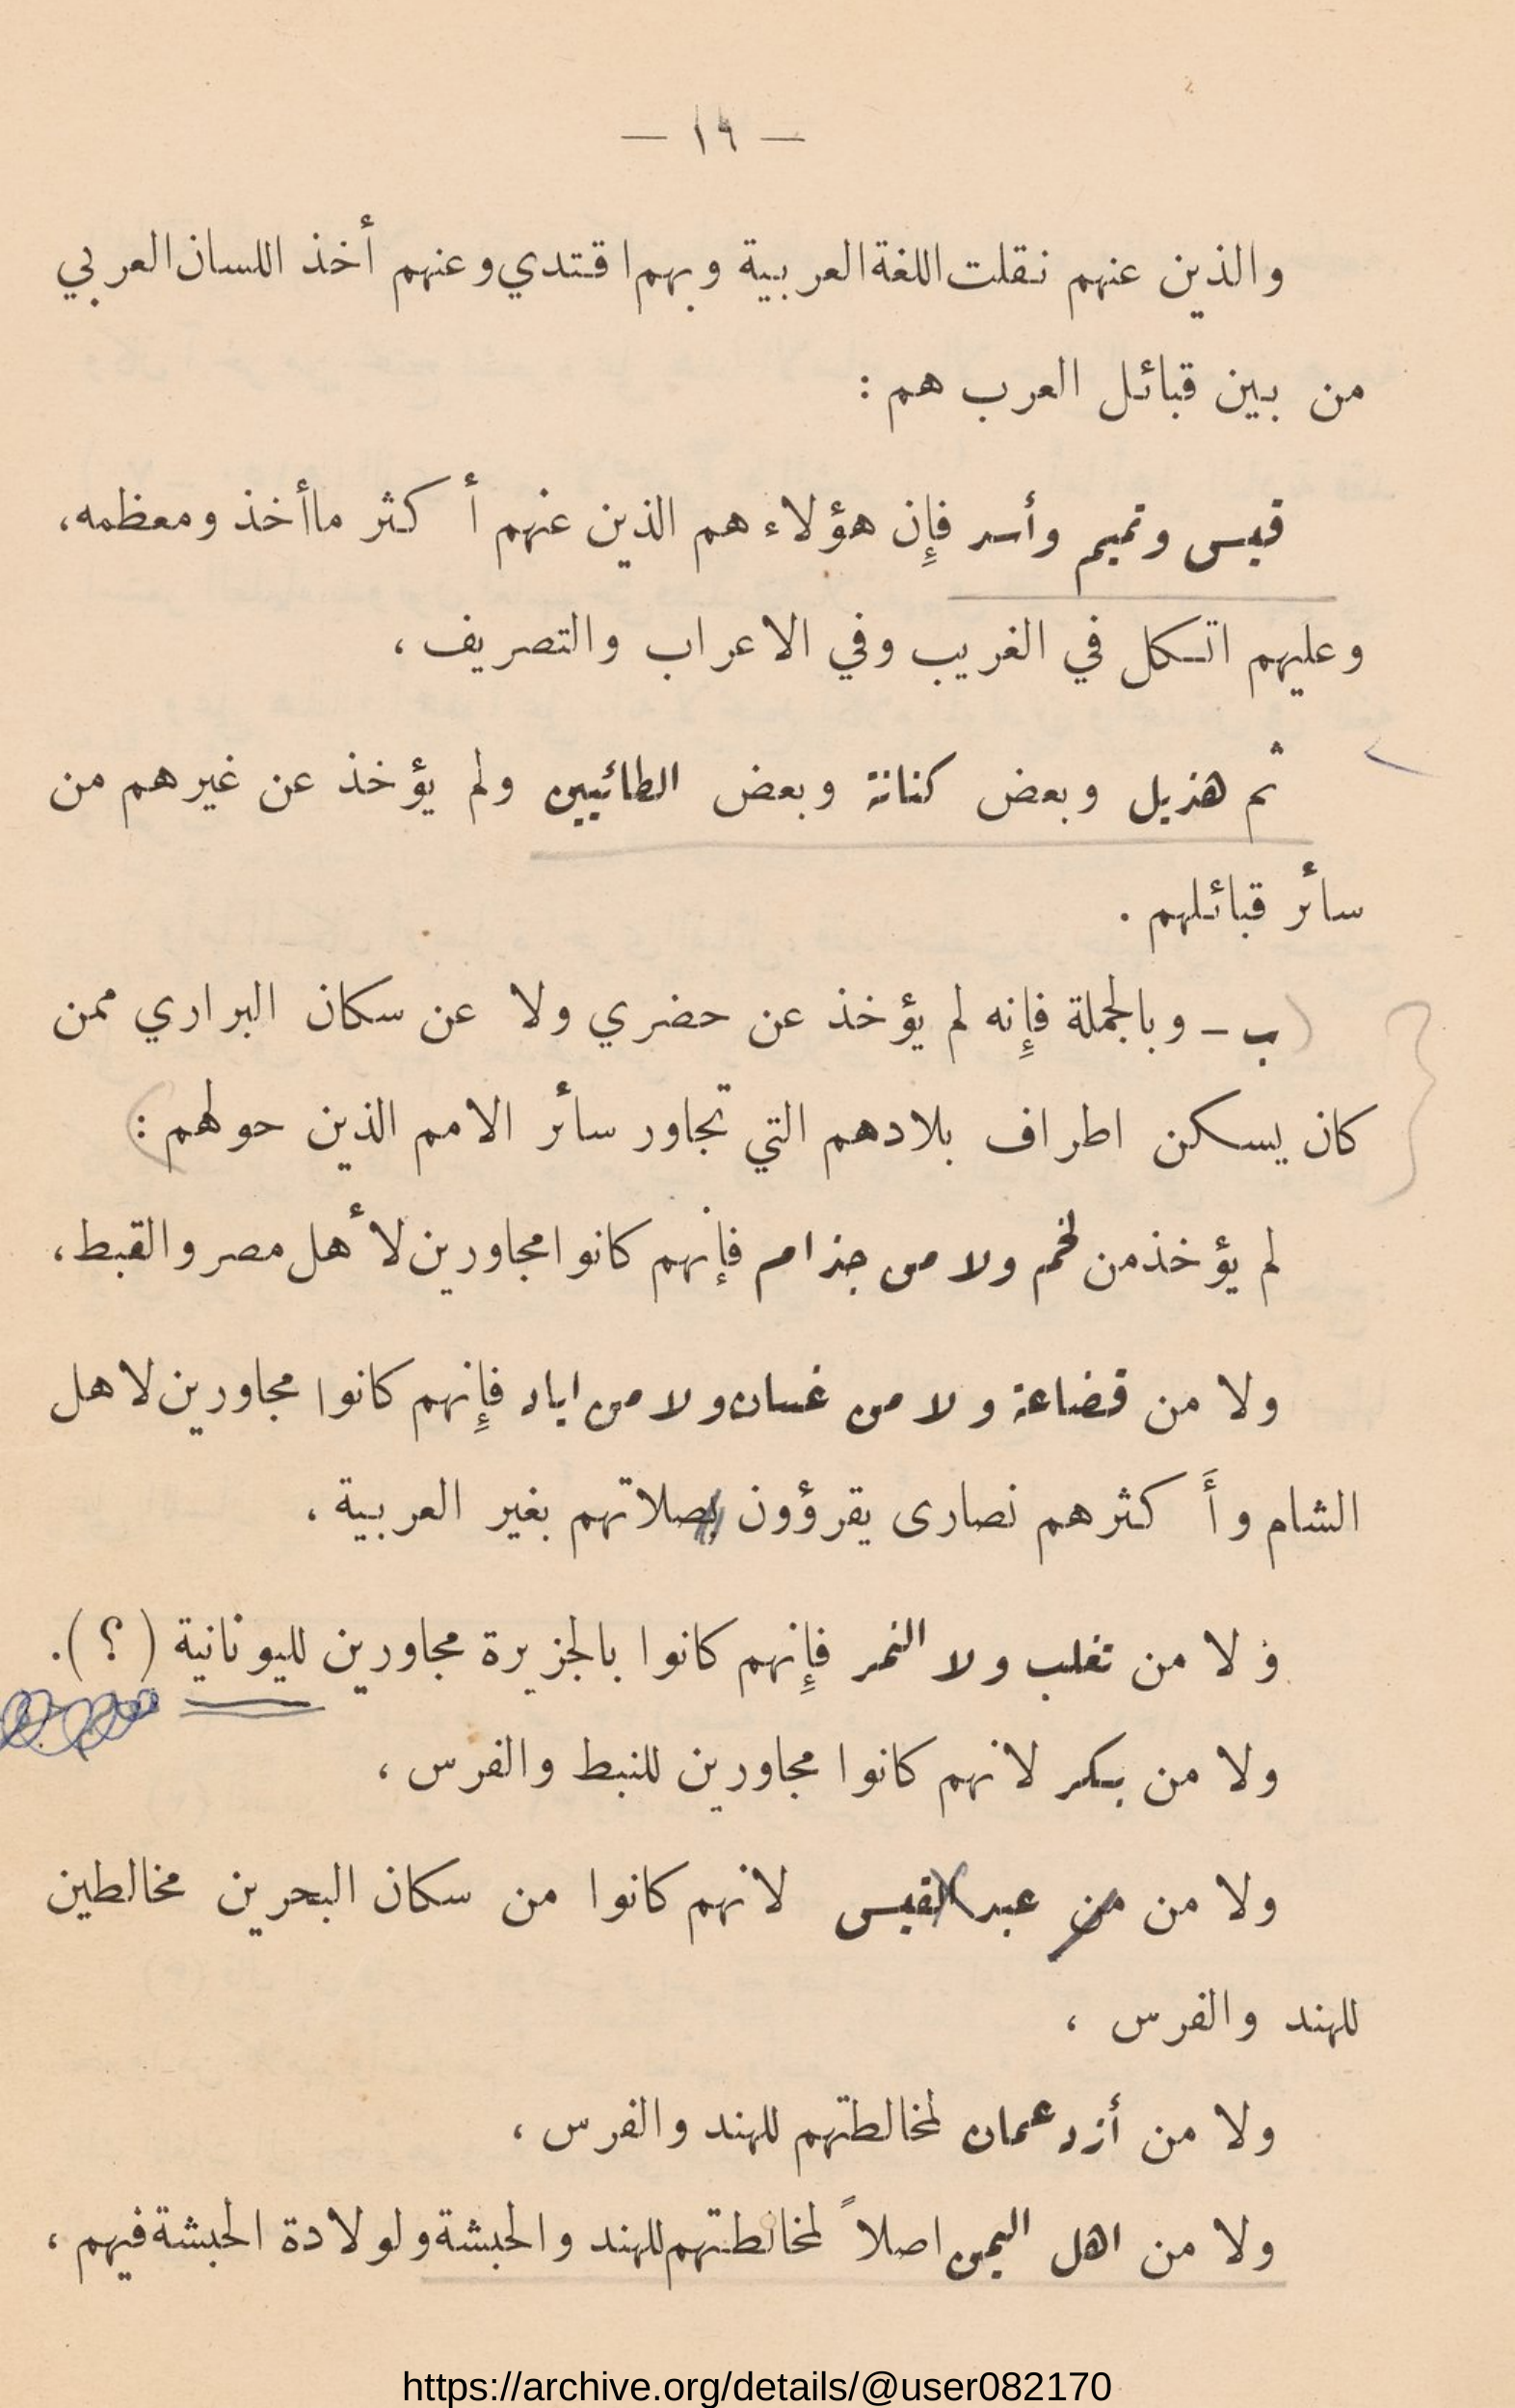 — ١٩ —
والذين عنهم نقلت اللغة العربية وبهم اقتدي وعنهم أخذ اللسان العربي
من بين قبائل العرب هم :
قيس وتميم وأسد فإِن هؤلاء هم الذين عنهم أكثر ما أخذ ومعظمه،
وعليهم اتكل في الغريب وفي الاعراب والتصريف ،
ثم هذيل وبعض كنانة وبعض الطائيين ولم يؤخذ عن غيرهم من
سائر قبائلهم .
(ب – وبالجملة فإِنه لم يؤخذ عن حضري ولا عن سكان البراري ممن
كان يسكن اطراف بلادهم التي تجاور سائر الامم الذين حولهم :)
لم يؤخذ من لخم ولا من جذام فإنهم كانوا مجاورين لأهل مصر والقبط،
ولا من قضاعة ولا من غسان ولا من اياد فإِنهم كانوا مجاورين لاهل
الشام وأَكثرهم نصارى يقرؤون بصلاتهم بغير العربية ،
ولا من تغلب ولا النمر فإِنهم كانوا بالجزيرة مجاورين لليونانية (؟).
ولا من بكر لانهم كانوا مجاورين للنبط والفرس ،
ولا من من عبد القيس لانهم كانوا من سكان البحرين مخالطين
للهند والفرس ،
ولا من أزد عمان لمخالطتهم للهند والفرس ،
ولا من اهل اليمن اصلاً لمخالطتهم للهند والحبشة ولولادة الحبشة فيهم ،
https://archive.org/details/@user082170